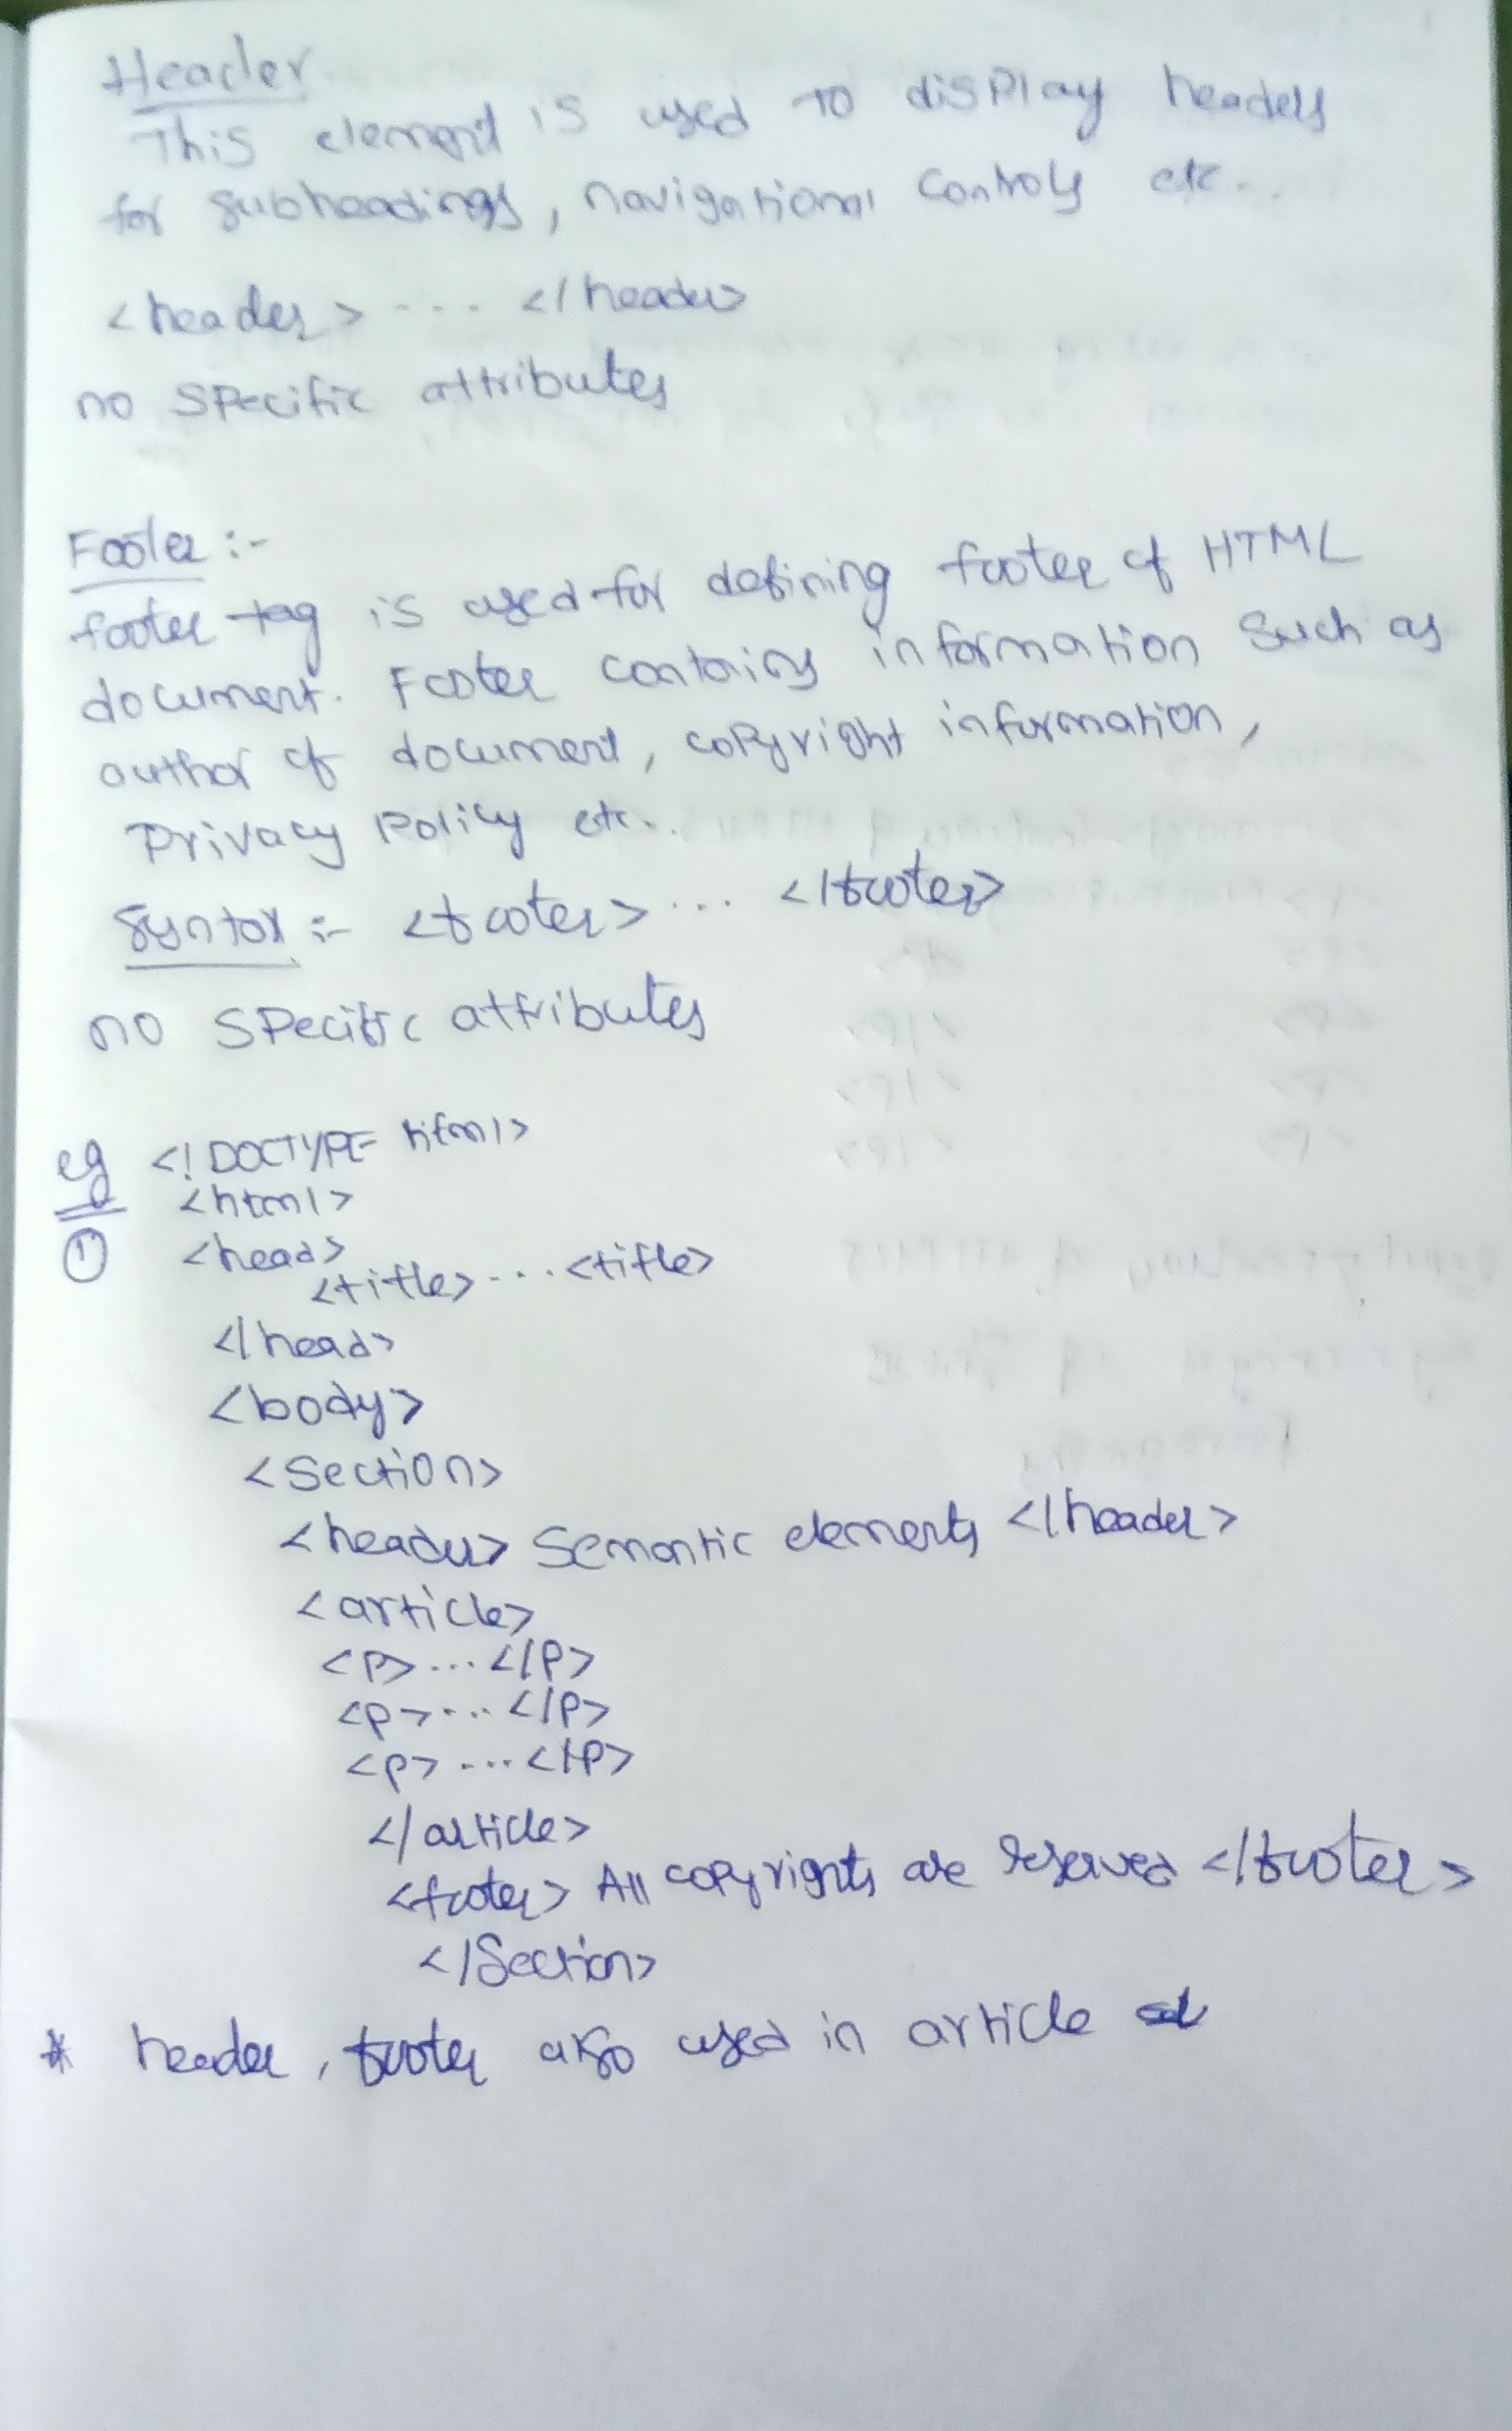 Header
This element is used to display headers
for subheadings, navigational controls etc...
<header> .... </header>
no specific attributes
Footer :-
footer tag is used for defining footer of HTML
document. Footer contains information such as
author of document, copyright information,
Privacy Policy etc...
Syntax :- <footer> ... </footer>
no specific attributes
eg <!DOCTYPE html>
<html>
① <head>
<title> ... <title>
</head>
<body>
<section>
<header> Semantic elements </header>
<article>
<p> ... </p>
<p> ... </p>
<p> ... </p>
</article>
<footer> All copyrights are reserved </footer>
</section>
* header, footer also used in article